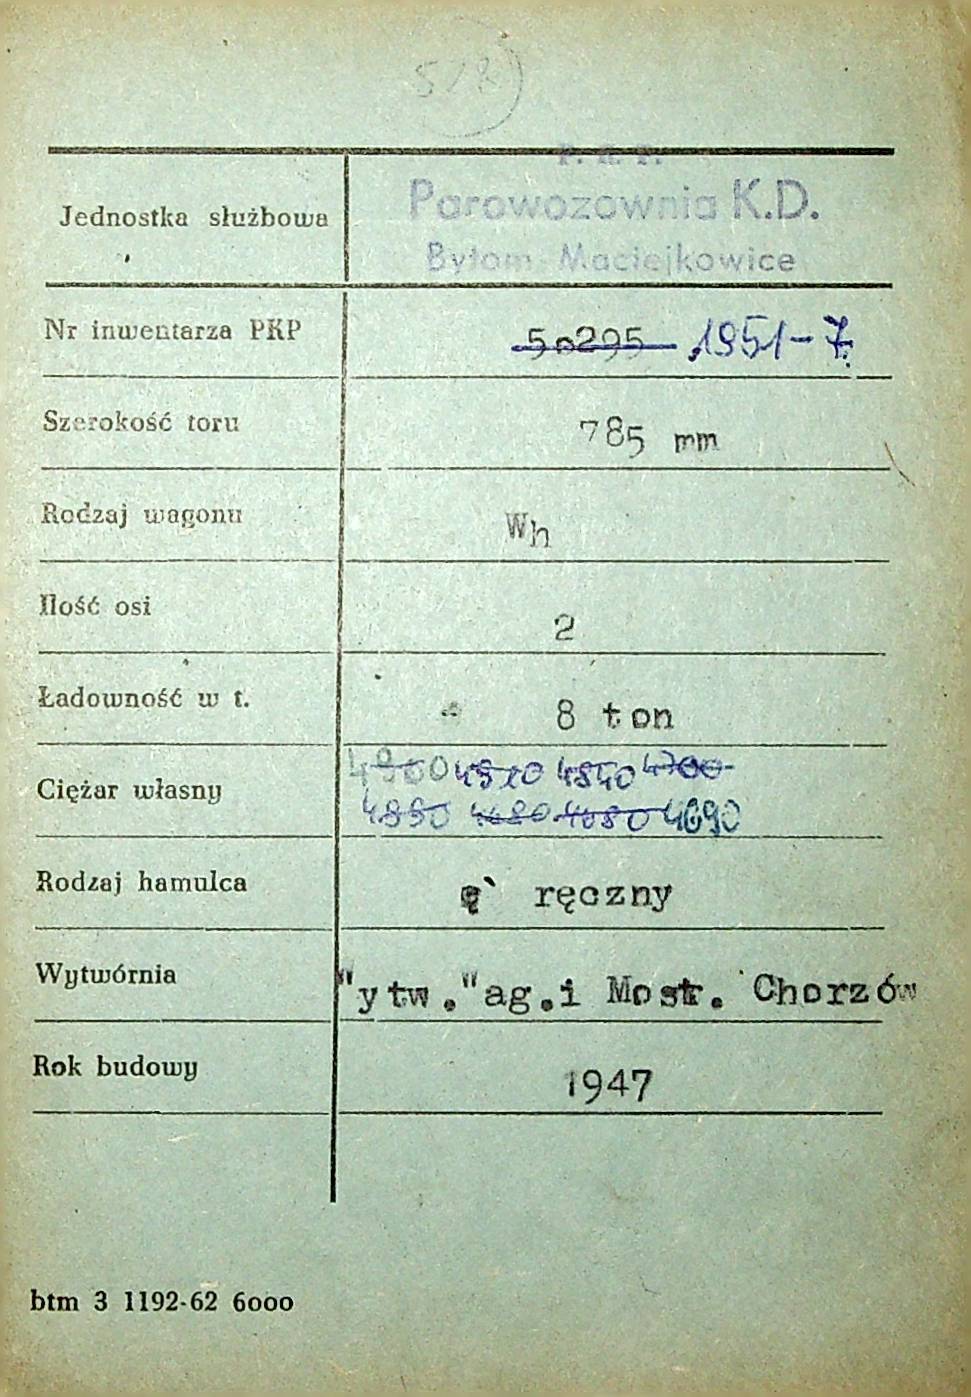 578
P. K. P.
Jednostka służbowa Parowozownia K.D.
Bytom-Maciejkowice
Nr inwentarza PKP 50295 1951-7
Szerokość toru 785 mm
Rodzaj wagonu Wh
Ilość osi 2
Ładowność w t. 8 ton
4900 4910 4840 4700
Ciężar własny
4850 4680 4690
Rodzaj hamulca ręczny
Wytwórnia "ytw."ag.i Mostr. Chorzów
Rok budowy 1947
btm 3 1192-62 6000